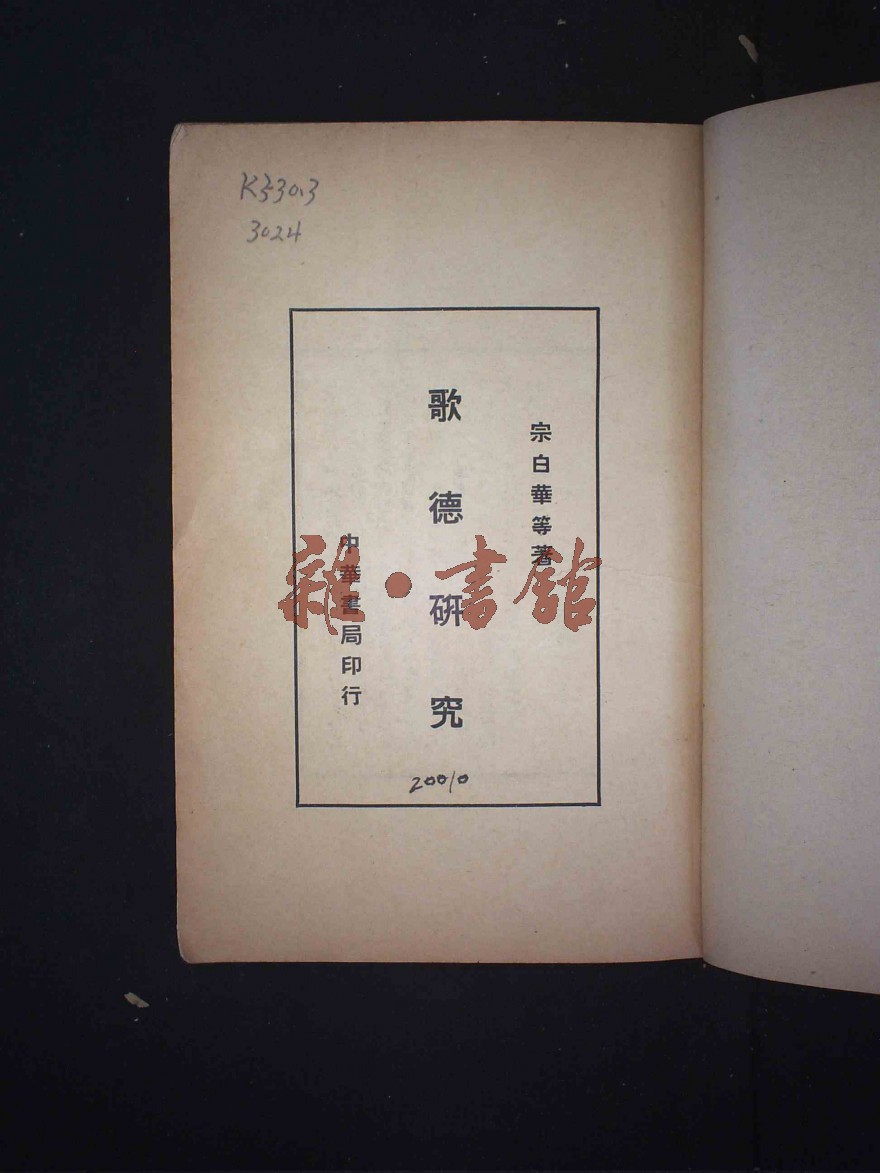 K330.3
3024
宗白華等著
歌德研究
中華書局印行
20010
雜·書館